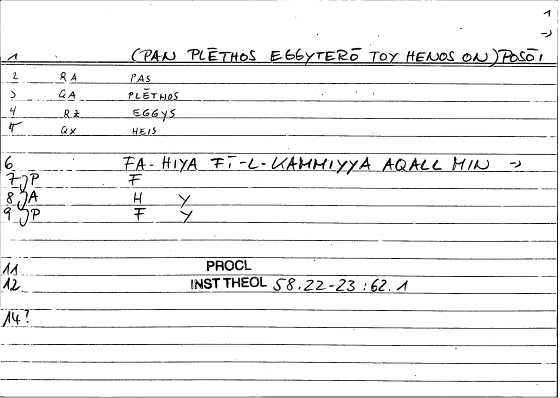 1
->
1 (PAN PLĒTHOS EGGYTERŌ TOY HENOS ON) POSŌI
2 RA PAS
3 GA PLĒTHOS
4 RZ EGGYS
5 QX HEIS
6 FA-HIYA FĪ-L-KAMMIYYA AQALL MIN ->
7 P F
8 A H Y
9 P F Y
11 PROCL
12 INST THEOL 58.22-23 : 62.1
14?